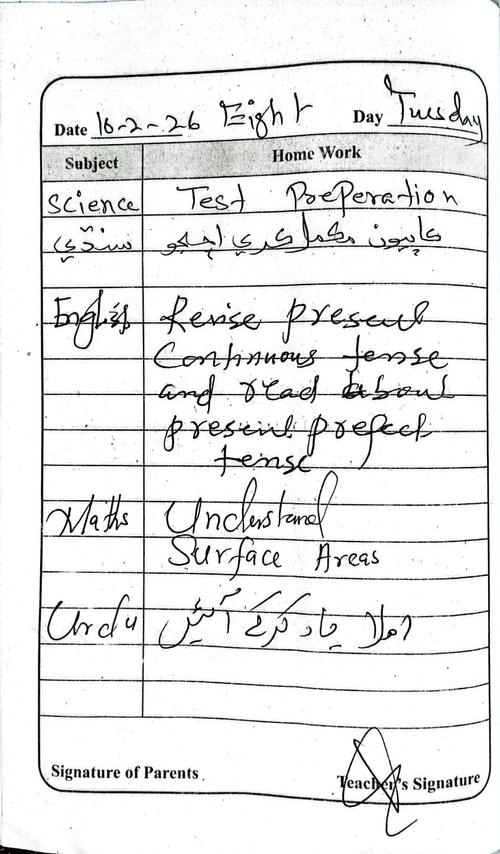 Date 10-2-26 Eight Day Tuesday
Subject Home Work
Science Test Preperation
سنڌي ڪاپيون مڪمل ڪري اچجو
English Revise present
Continuous tense
and read about
present prefect
tense
Maths Understand
Surface Areas
Urdu املا یاد کرکے آئیں
Signature of Parents Teacher's Signature